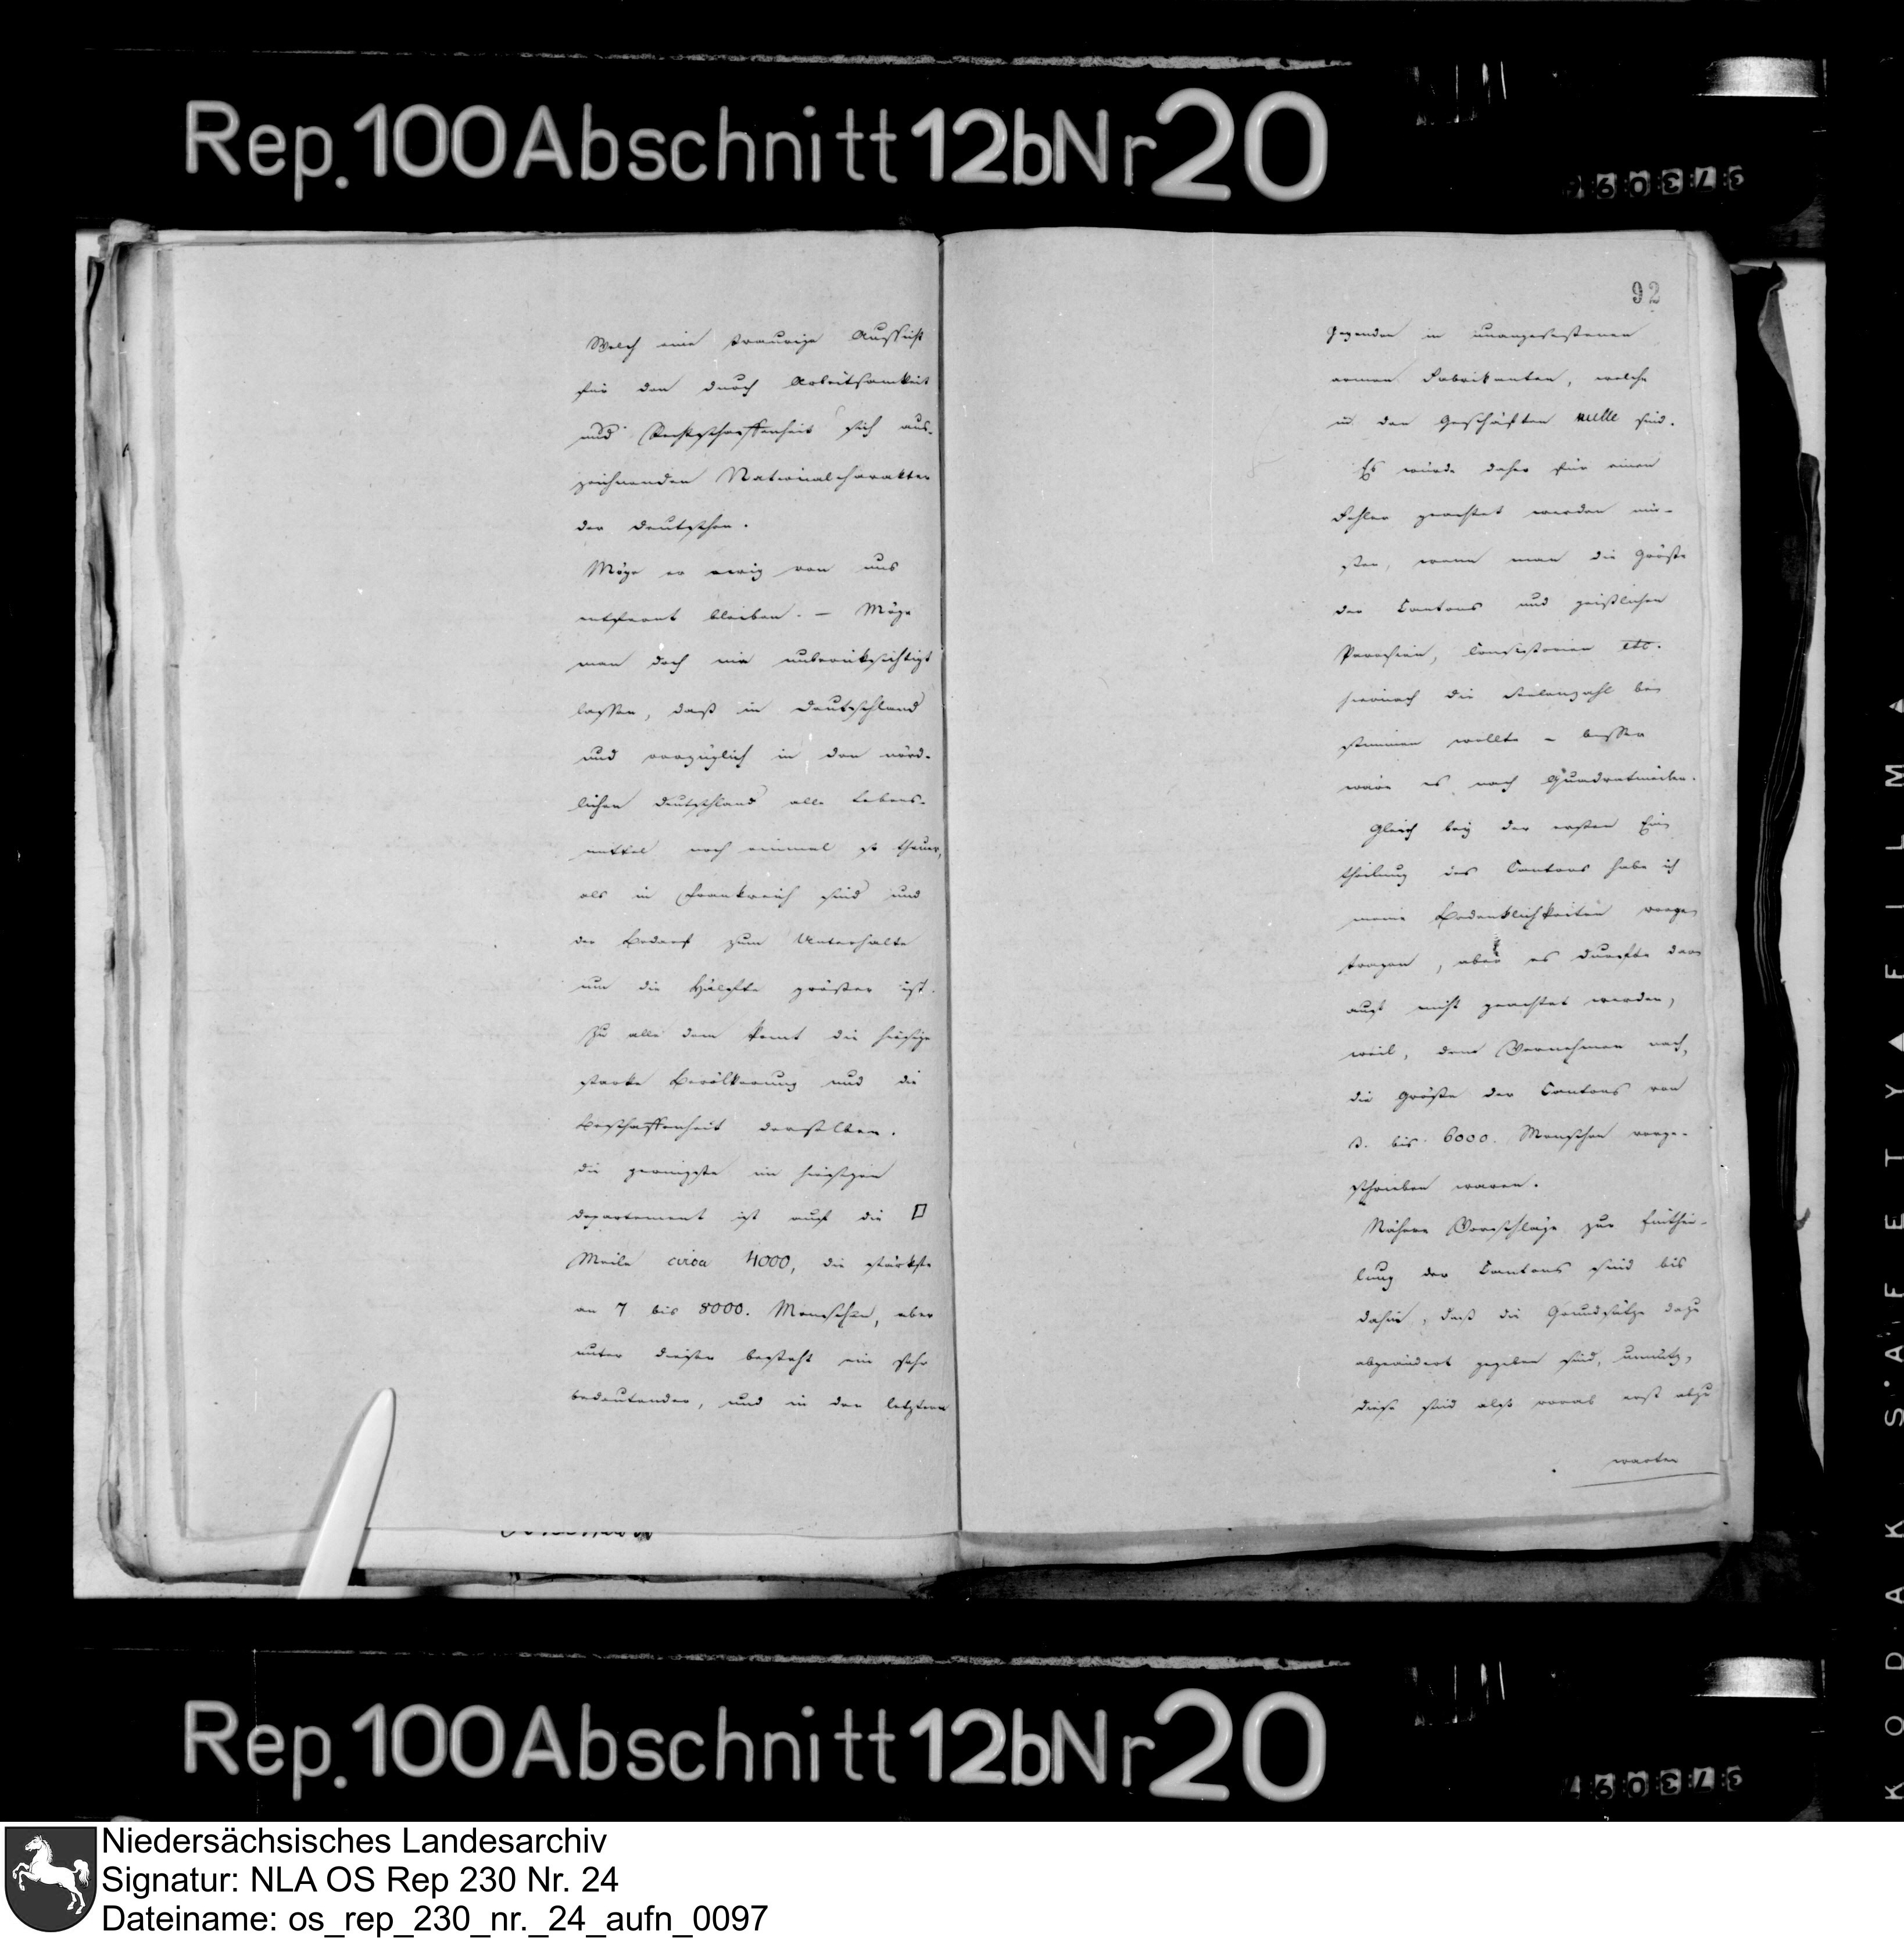 Rep. 100 Abschnitt 12b Nr 20
Welch eine traurige Aussicht
für den durch Arbeitsamkeit
und Rechtschaffenheit sich aus-
zeichnenden Nationalcharakter
der Deutschen.
Möge er ewig von uns
entfernt bleiben. – Möge
man doch nie unberücksichtigt
lassen, daß in Deutschland
und vorzüglich in den nörd-
lichen Deutschland alle Lebens-
mittel noch einmal so theuer,
als in Frankreich sind und
der Bedarf zum Unterhalte
um die Hälfte größer ist.
Zu alle dem komt die hiesige
starke Bevölkerung und die
Beschaffenheit derselben.
die geringste im hiesigen
departement ist auf die □
Meile circa 4000, die stärkste
an 7 bis 8000. Menschen, aber
unter dieser besteht ein sehr
bedeutender, und in den letztern
92
Gegenden in unangesessenen
armen Fabrikanten, welche
in den Geschäften nulle sind.
Es würde daher für einen
Fehler geachtet werden müs-
sen, wenn man die Größe
der Cantons und geistlichen
Parochien, Consistorien etc.
hiernach die Seelenzahl be
stimmen wollte – besser
wäre es nach Quadratmeilen.
Gleich bey der ersten Ein
theilung des Cantons habe ich
meine Bedenklichkeiten vorge
tragen, aber es durfte dar
auf nicht geachtet werden,
weil, dem Vernehmen nach,
die Größe der Cantons von
5. bis 6000. Menschen vorge-
schrieben waren.
Nähere Vorschläge zur Einthei-
lung der Cantons sind bis
dahin, daß die Grundsätze dazu
abgeändert gegeben sind, unnütz,
diese sind also vorab erst abzu
warten
Rep. 100 Abschnitt 12b Nr 20
KODAK SAFETY FILM
Niedersächsisches Landesarchiv
Signatur: NLA OS Rep 230 Nr. 24
Dateiname: os_rep_230_nr._24_aufn_0097